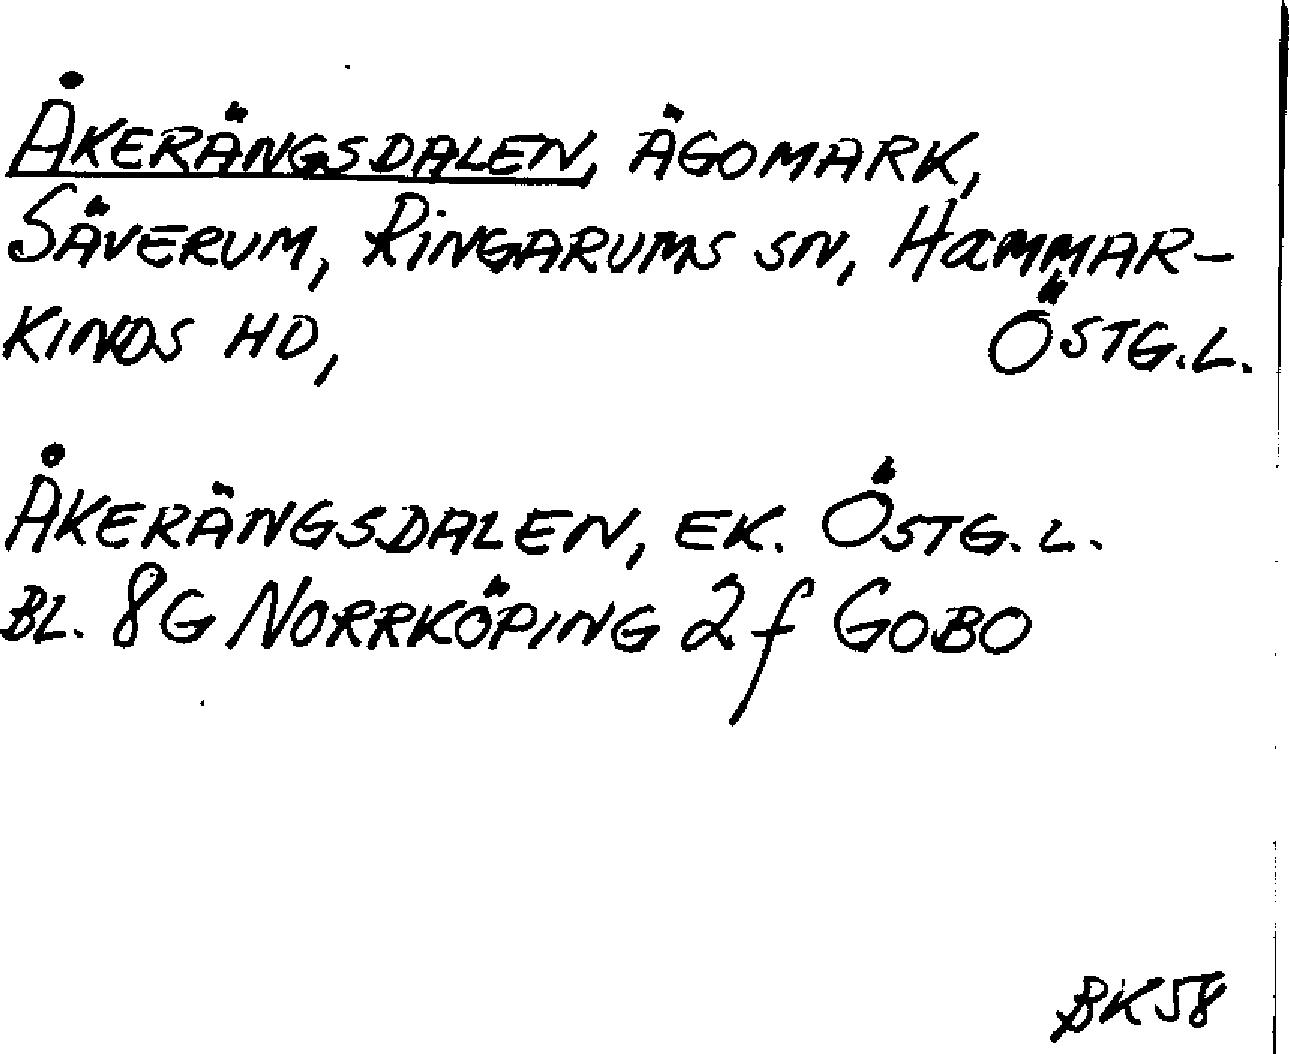 ÅKERÄNGSDALEN, ÄGOMARK,
SÄVERUM, RINGARUMS SN, HAMMAR-
KINDS HD, ÖSTG.L.
ÅKERÄNGSDALEN, EK. ÖSTG.L.
BL. 8G NORRKÖPING 2f GOBO
BK58